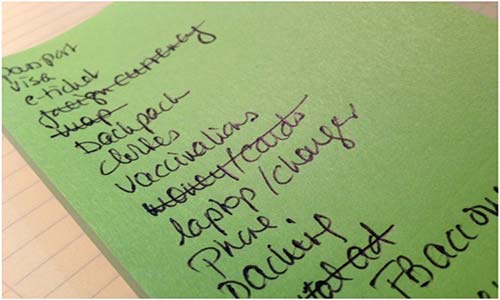 passport
visa
e-ticket
foreign currency
map
backpack
clothes
vaccinations
money/cards
laptop/charger
Phone.